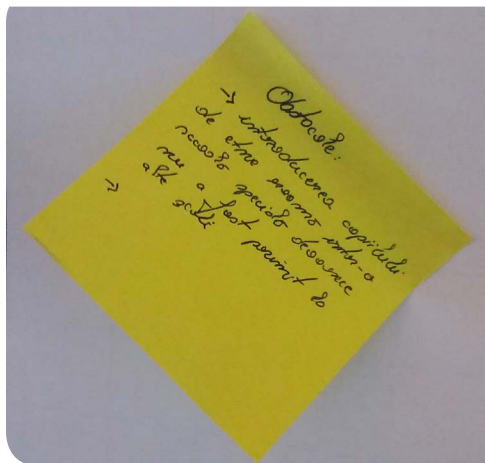 Obstacole:
→ introducerea copilului
de etnie rromă într-o
școală specială deoarece
nu a fost primit la
alte școli
→